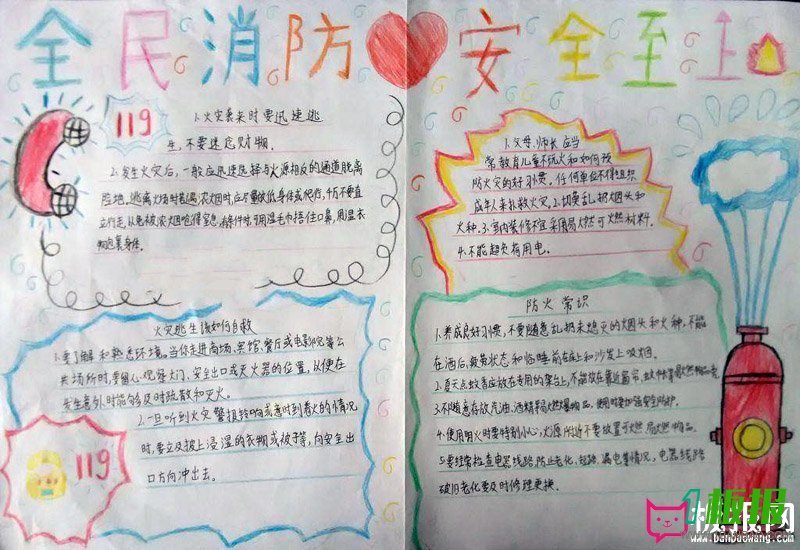 全民消防安全至上
119
1.火灾袭来时要迅速逃
生,不要迷恋财物.
2.发生火灾后,一般应迅速选择与火源相反的通道脱离
险地,逃离火场时若遇浓烟时,应尽量放低身体或爬行,千万不要直
立行走,以免被浓烟呛得窒息.
用湿毛巾捂住口鼻,用湿衣
物包裹身体.
火灾逃生该如何自救
1.要了解和熟悉环境。当你走进商场、宾馆、餐厅或电影院等公
共场所时,要留心观察大门、安全出口或灭火器的位置,从便在
发生意外时能够及时疏散和灭火.
2.一旦听到火灾警报铃响或意时到着火的情况
时,要立及披上浸湿的衣物或被子等,向安全出
口方向冲出去。
119
1.父母,师长应当
常教育儿童不玩火和如何预
防火灾的好习惯。任何单位不得组织
成年人来扑救火灾。2.切莫乱扔烟头和
火种。3.室内装修不宜采用易燃可燃材料。
4.不能超负荷用电。
防火常识
1.养成良好习惯,不要随意乱扔未熄灭的烟头和火种,不能
在酒后,疲劳状态和临睡前在床上和沙发上吸烟。
2.夏天点蚊香应放在专用的架台上,不能放在靠近窗帘,
3.不随意存放汽油、酒精易燃易爆的物品,使用时要加强安全防护.
4.使用明火时要特别小心,火源附近不要放置可燃易燃物品。
5.要经常检查电器线路,防止老化,短路,漏电等情况,电器线路
破旧老化要及时修理更换。
1板报
板报网
www.banbaowang.com